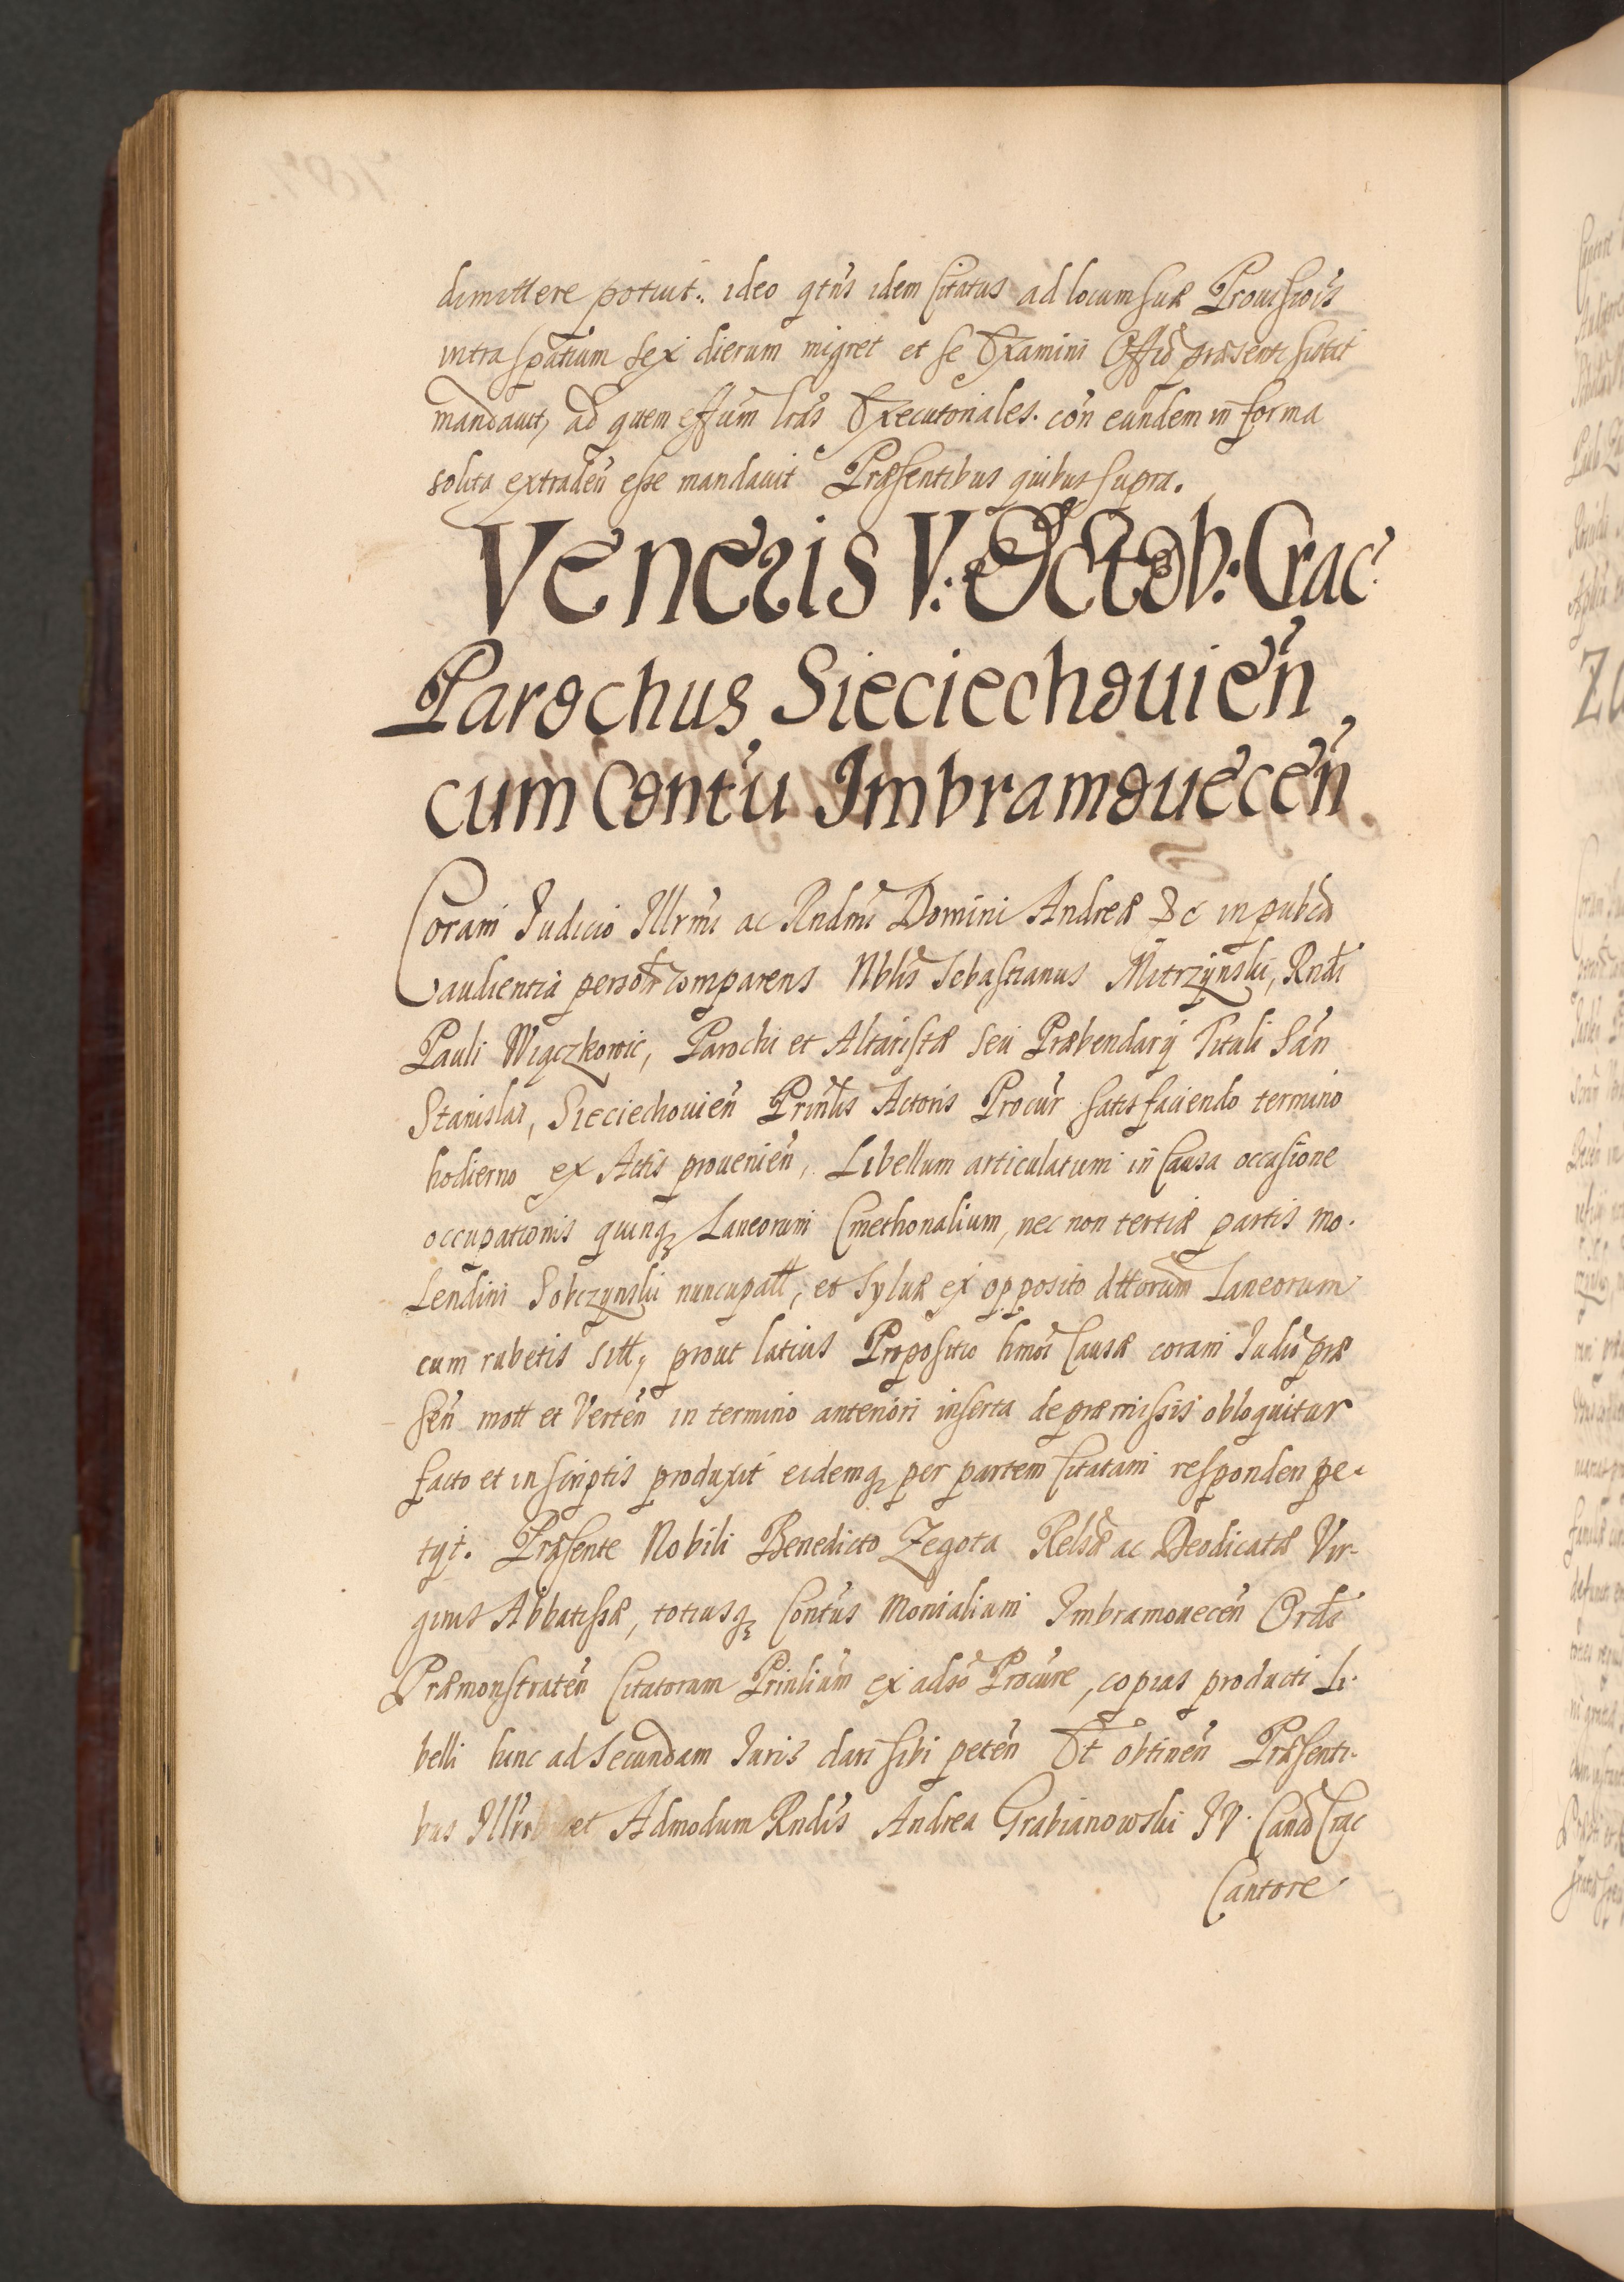 dimittere potuit. ideo qtn̄s idem Citatus ad locum suæ Prouisiōis
intra spatium sex dierum migret et se Examini Offīo præsenti sistat
mandauit, ad quem effūm lrās Executoriales. cōn eundem in forma
solita extradeñ esse mandauit Præsentibus quibus supra.
Veneris V. Octob: Crac:
Parochus Sieciechouieñ
cum Conťu Imbramoueceñ.
Coram Judicio Illrmi ac Rndmi Domini Andreæ &c in pubca
audientia personlr comparens Nblis Sebastianus Mitrzynski, Rndi
Pauli Wiączkowic, Parochi et Altaristæ seu Præbendarij Tituli San
Stanislai, Sieciechouieñ Prinlis Actoris Procur satisfaciendo termino
hodierno ex Actis prouenieñ, Libellum articulatum in Causa occasione
occupationis quinqȝ Laneorum Cmethonalium, nec non tertiæ partis mo.
lendini Sobczynski nuncupatt, et syluæ ex opposito dttorum Laneorum
cum rubetis sitt, prout latius Propositio hmoi Causæ coram Judio præ
señ mott et Verteñ in termino anteriori inserta de præmissis obloquitur
facto et in scriptis produxit eidemqȝ per partem Citatam respondeñ pe-
tijt. Præsente Nobili Benedicto Zegota Relsæ ac Deodicatæ Vir-
ginis Abbatissæ, totiusqȝ Conťus Monialium Imbramoueceñ Ordis
Præmonstrateñ Citatorum Prinlium ex adso Procure, copias producti Li-
belli hinc ad secundam Juris dari sibi peteñ Et obtineñ Præsenti-
bus Illri et Admodum Rndis Andrea Grabianowski IV. Cand Crac
Cantore